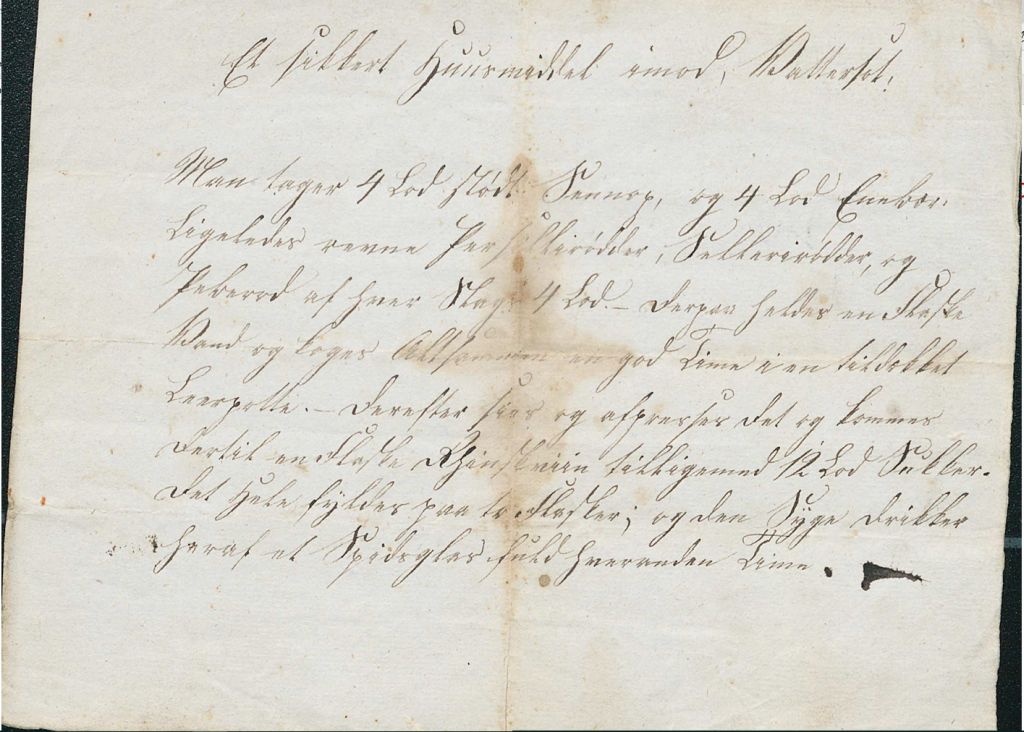 Et sikkert Huusmiddel imod, Vattersot.
Man tager 4 Lod stødt Sennop, og 4 Lod Enebær.
Ligeledes revne Persillirødder, Sellerirødder, og
Peberrod af hver Slags 4 Lod. – Derpaa heldes en Flaske
Vand og koges Altsammen en god Time i en tildækket
Leerpotte. – Derefter sies og afpresses det og kommes
dertil en Flaske Rhinskviin tilligemed 12 Lod Sukker.
Det Hele fyldes paa to Flasker; og den Syge drikker
heraf et Spidsglas fuld hveranden Time.